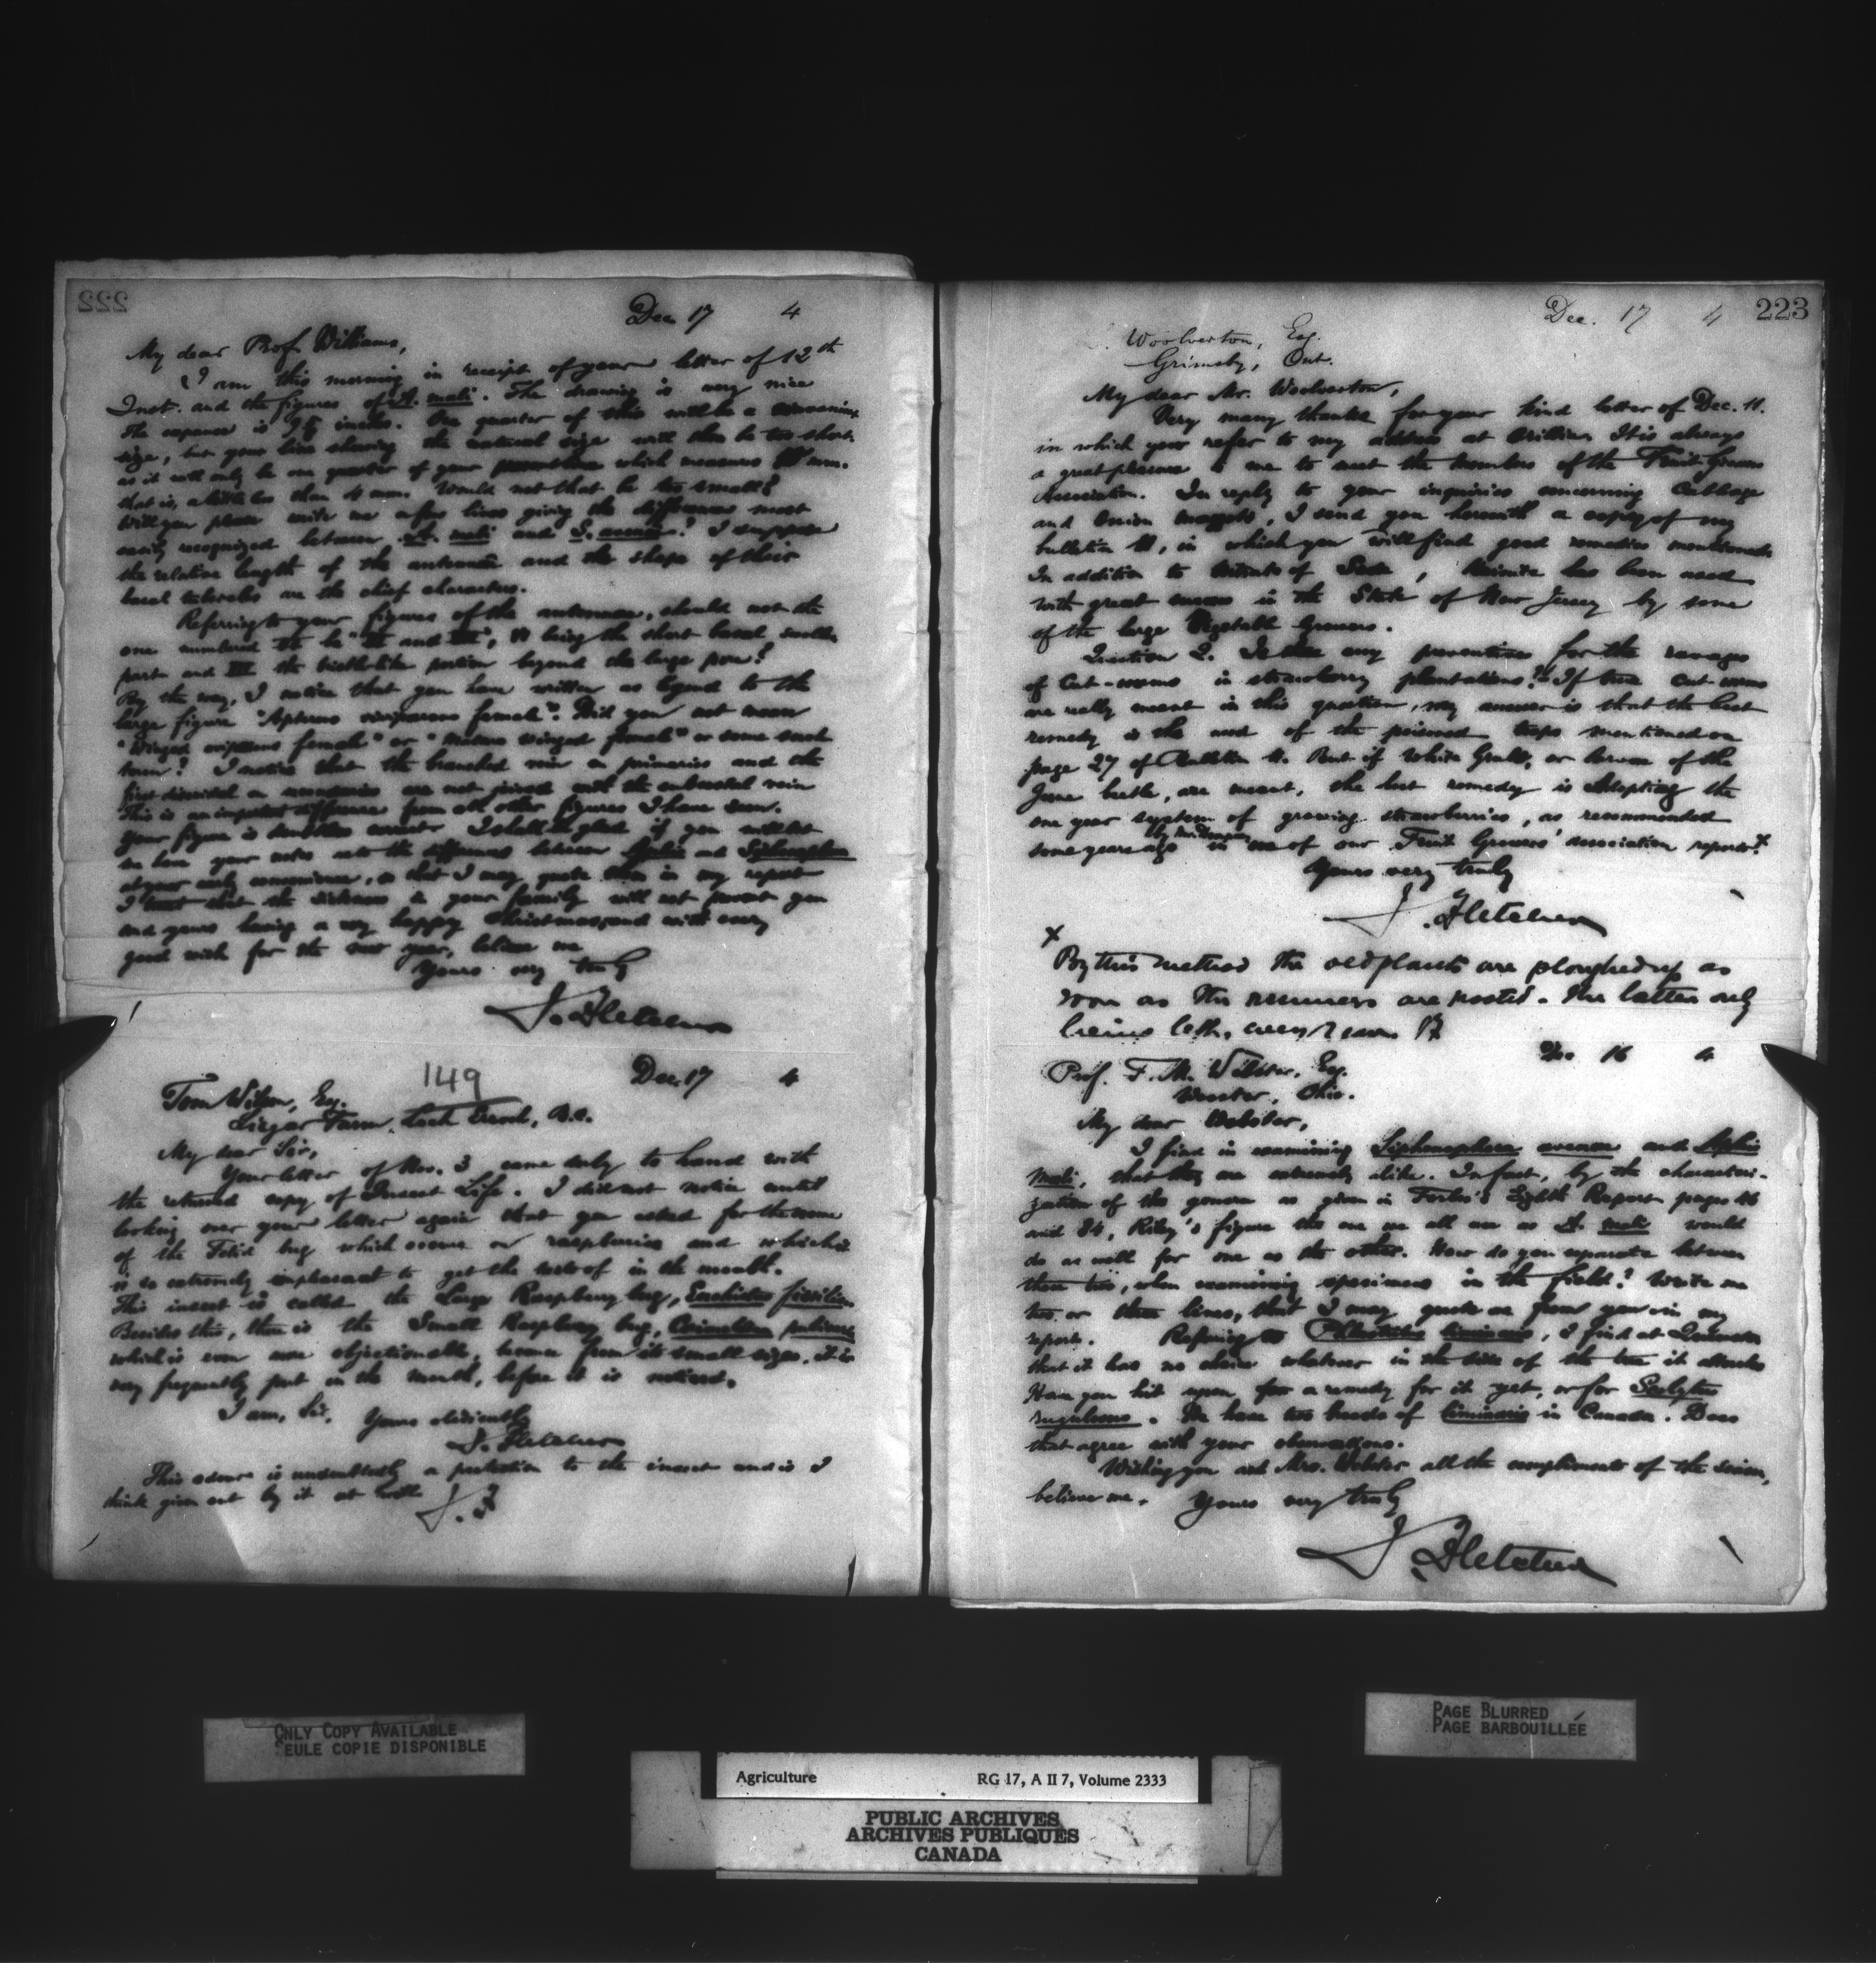 222
Dec 17 4
My dear Prof Williams,
I am this morning in receipt of your letter of 12th
Inst. and the figures of A. mali. The drawing is very nice
The expanse is inches. One quarter of this will be a convenient
size, but your line showing the natural size will then be too short,
as it will only be one quarter of your which measures mm.
that is, a little less than 4 mm. Would not that be too small?
Will you please write me a few lines giving the differences most
easily recognized between A. mali and S. avenae? I suppose
the relative length of the antennae and the shape of their
are the chief characters.
Referring to your figures of the antennae, should not the
one numbered be and being the short basal smaller
part and the bristle-like portion beyond the large pore?
By the way, I notice that you have written as legend to the
large figure "Apterous viviparous female". Did you not mean
"Winged viviparous female" or winged female" or some such
term? I notice that the branched vein in primaries and the
first in secondaries are not joined with the subcostal vein
This is an important difference from all other figures I have seen.
Your figure is correct I shall be glad if you will let
me have your notes as to the differences between Aphis and Siphonophora
at your early convenience, so that I may quote them in my report
I trust that the sickness in your family will not prevent you
and yours having a very happy Christmas, and with every
good wish for the new year, believe me
Yours very truly
J. Fletcher
149
Dec. 17 4
Tom Wilson, Esq.
Farm, B.C.
My dear Sir,
Your letter of Nov. 3 came duly to hand with
the returned copy of Insect Life. I did not notice until
looking over your letter again that you asked for the name
of the Fetid bug which occurs on raspberries and which
is so extremely unpleasant to get the taste of in the mouth.
This insect is called the Large Raspberry bug, Euchistus fissilis.
Besides this, there is the Small Raspberry bug, Corimelaena pulicaria
which is even more objectionable, because from its small size, it is
very frequently put in the mouth, before it is noticed.
I am, Sir, Yours obediently
J. Fletcher
This odour is undoubtedly a protection to the insect and is I
think given out by it at will
J. F
Dec. 17 4
223
L. Woolverton, Esq.
Grimsby, Ont.
My dear Mr. Woolverton,
Very many thanks for your kind letter of Dec. 11.
in which you refer to my address at Orillia. It is always
a great pleasure to me to meet the members of the Fruit Growers
Association. In reply to your inquiries concerning Cabbage
and Onion maggots, I send you herewith a copy of my
bulletin 11, in which you will find good remedies mentioned.
In addition to Nitrate of Soda, Kainite has been used
with great success in the State of New Jersey by some
of the large Vegetable Growers.
Question 2. Is there any preventive for the ravages
of Cut-worms in strawberry plantations? If true cut-worms
are really meant in this question, my answer is that the best
remedy is the use of the poisoned traps mentioned on
page 27 of Bulletin 11. But if White Grubs, or larvae of the
June beetle, are meant, the best remedy is adopting the
one year system of growing strawberries, as recommended
some years ago by Mr. in one of our Fruit Growers' association reports. x
Yours very truly
J. Fletcher
x
By this method the old plants are ploughed up as
soon as the runners are rooted. the latter only
being left, every year. JF
Dec 16 4
Prof. F. M. Webster, Esq.
Wooster, Ohio.
My dear Webster,
I find in examining Siphonophora avenae and Aphis
mali, that they are extremely alike. In fact, by the characteri-
zation of the genera as given in Forbes's Eighth Report pages
and Riley's figure the one we all use as A. mali would
do as well for one as the other. How do you separate between
these two, when examining specimens in the field? Write me
two or three lines, that I may quote as from you in my
report. Referring to liminaris, I find at Queenston
that it has no choice whatever in the side of the tree it attacks
Have you hit upon for a remedy for it yet, or for Scolytus
rugulosus. We have two broods of liminaris in Canada. Does
that agree with your observations.
Wishing you and Mrs. Webster all the compliments of the season,
believe me, Yours very truly
J. Fletcher
ONLY COPY AVAILABLE
SEULE COPIE DISPONIBLE
PAGE BLURRED
PAGE BARBOUILLÉE
Agriculture RG 17, A II 7, Volume 2333
PUBLIC ARCHIVES
ARCHIVES PUBLIQUES
CANADA